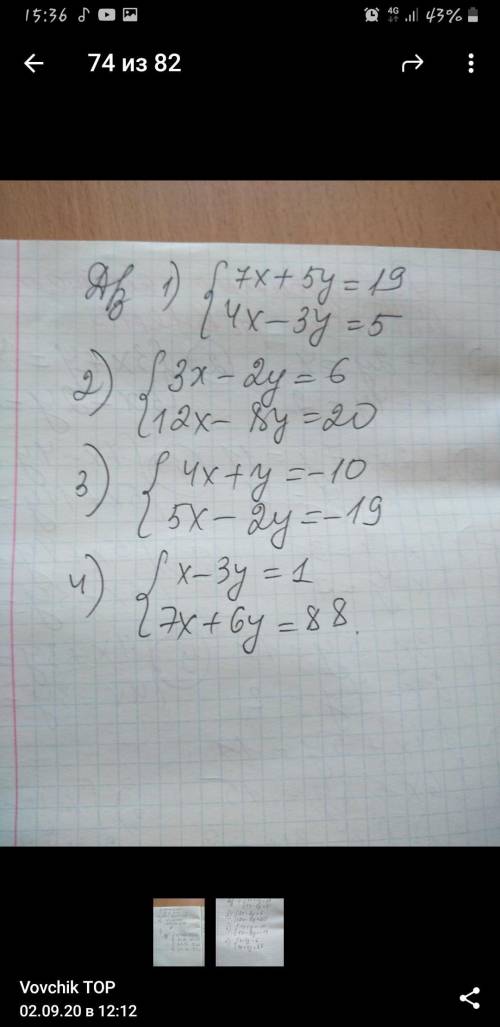 15:36 4G 43%
74 из 82
Дз 1) { 7x + 5y = 19
4x - 3y = 5
2) { 3x - 2y = 6
12x - 8y = 20
3) { 4x + y = -10
5x - 2y = -19
4) { x - 3y = 1
7x + 6y = 88.
Vovchik TOP
02.09.20 в 12:12